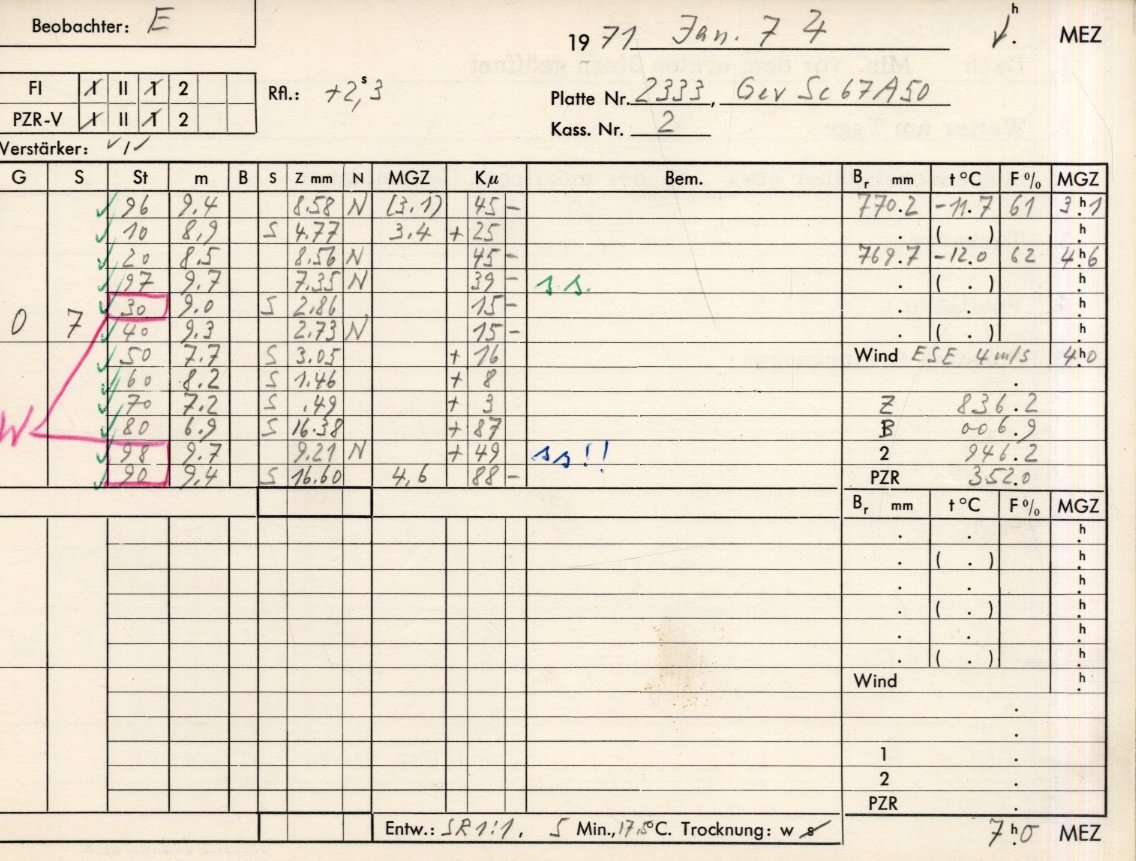 Beobachter: E
1971 Jan. 7 4 h. MEZ
FI I II 1 2
Rfl.: +2,ˢ3
Platte Nr. 2333, Gev Sc 67A50
PZR-V I II 1 2
Kass. Nr. 2
Verstärker:
G S St m B S Z mm N MGZ Kμ Bem. Bᵣ mm t °C F % MGZ
96 9.4 8.58 N (3.1) 45 - 770.2 -11.7 61 3ʰ1
10 8,9 S 4.77 3.4 + 25 . ( . ) h.
20 8.5 8.56 N 45 - 769.7 -12.0 62 4ʰ6
97 9.7 7.35 N 39 - ss. . ( . ) h.
0 7 30 9.0 S 2.86 15 - . . h.
40 9.3 2.73 N 15 - . ( . ) h.
50 7.7 S 3.05 + 16 Wind ESE 4 m/s 4ʰ0
60 8.2 S 1.46 + 8 .
70 7.2 S .49 + 3 Z 836.2
W 80 6.9 S 16.38 + 87 B 006.9
98 9.7 9.21 N + 49 ss!! 2 946.2
90 9.4 S 16.60 4,6 88 - PZR 352.0
Bᵣ mm t °C F % MGZ
. . h.
. ( . ) h.
. . h.
. ( . ) h.
. . h.
. ( . ) h.
Wind h.
.
.
1 .
2 .
PZR .
Entw.: SR 1:1, 5 Min., 17.5°C. Trocknung: w s
7ʰ0 MEZ